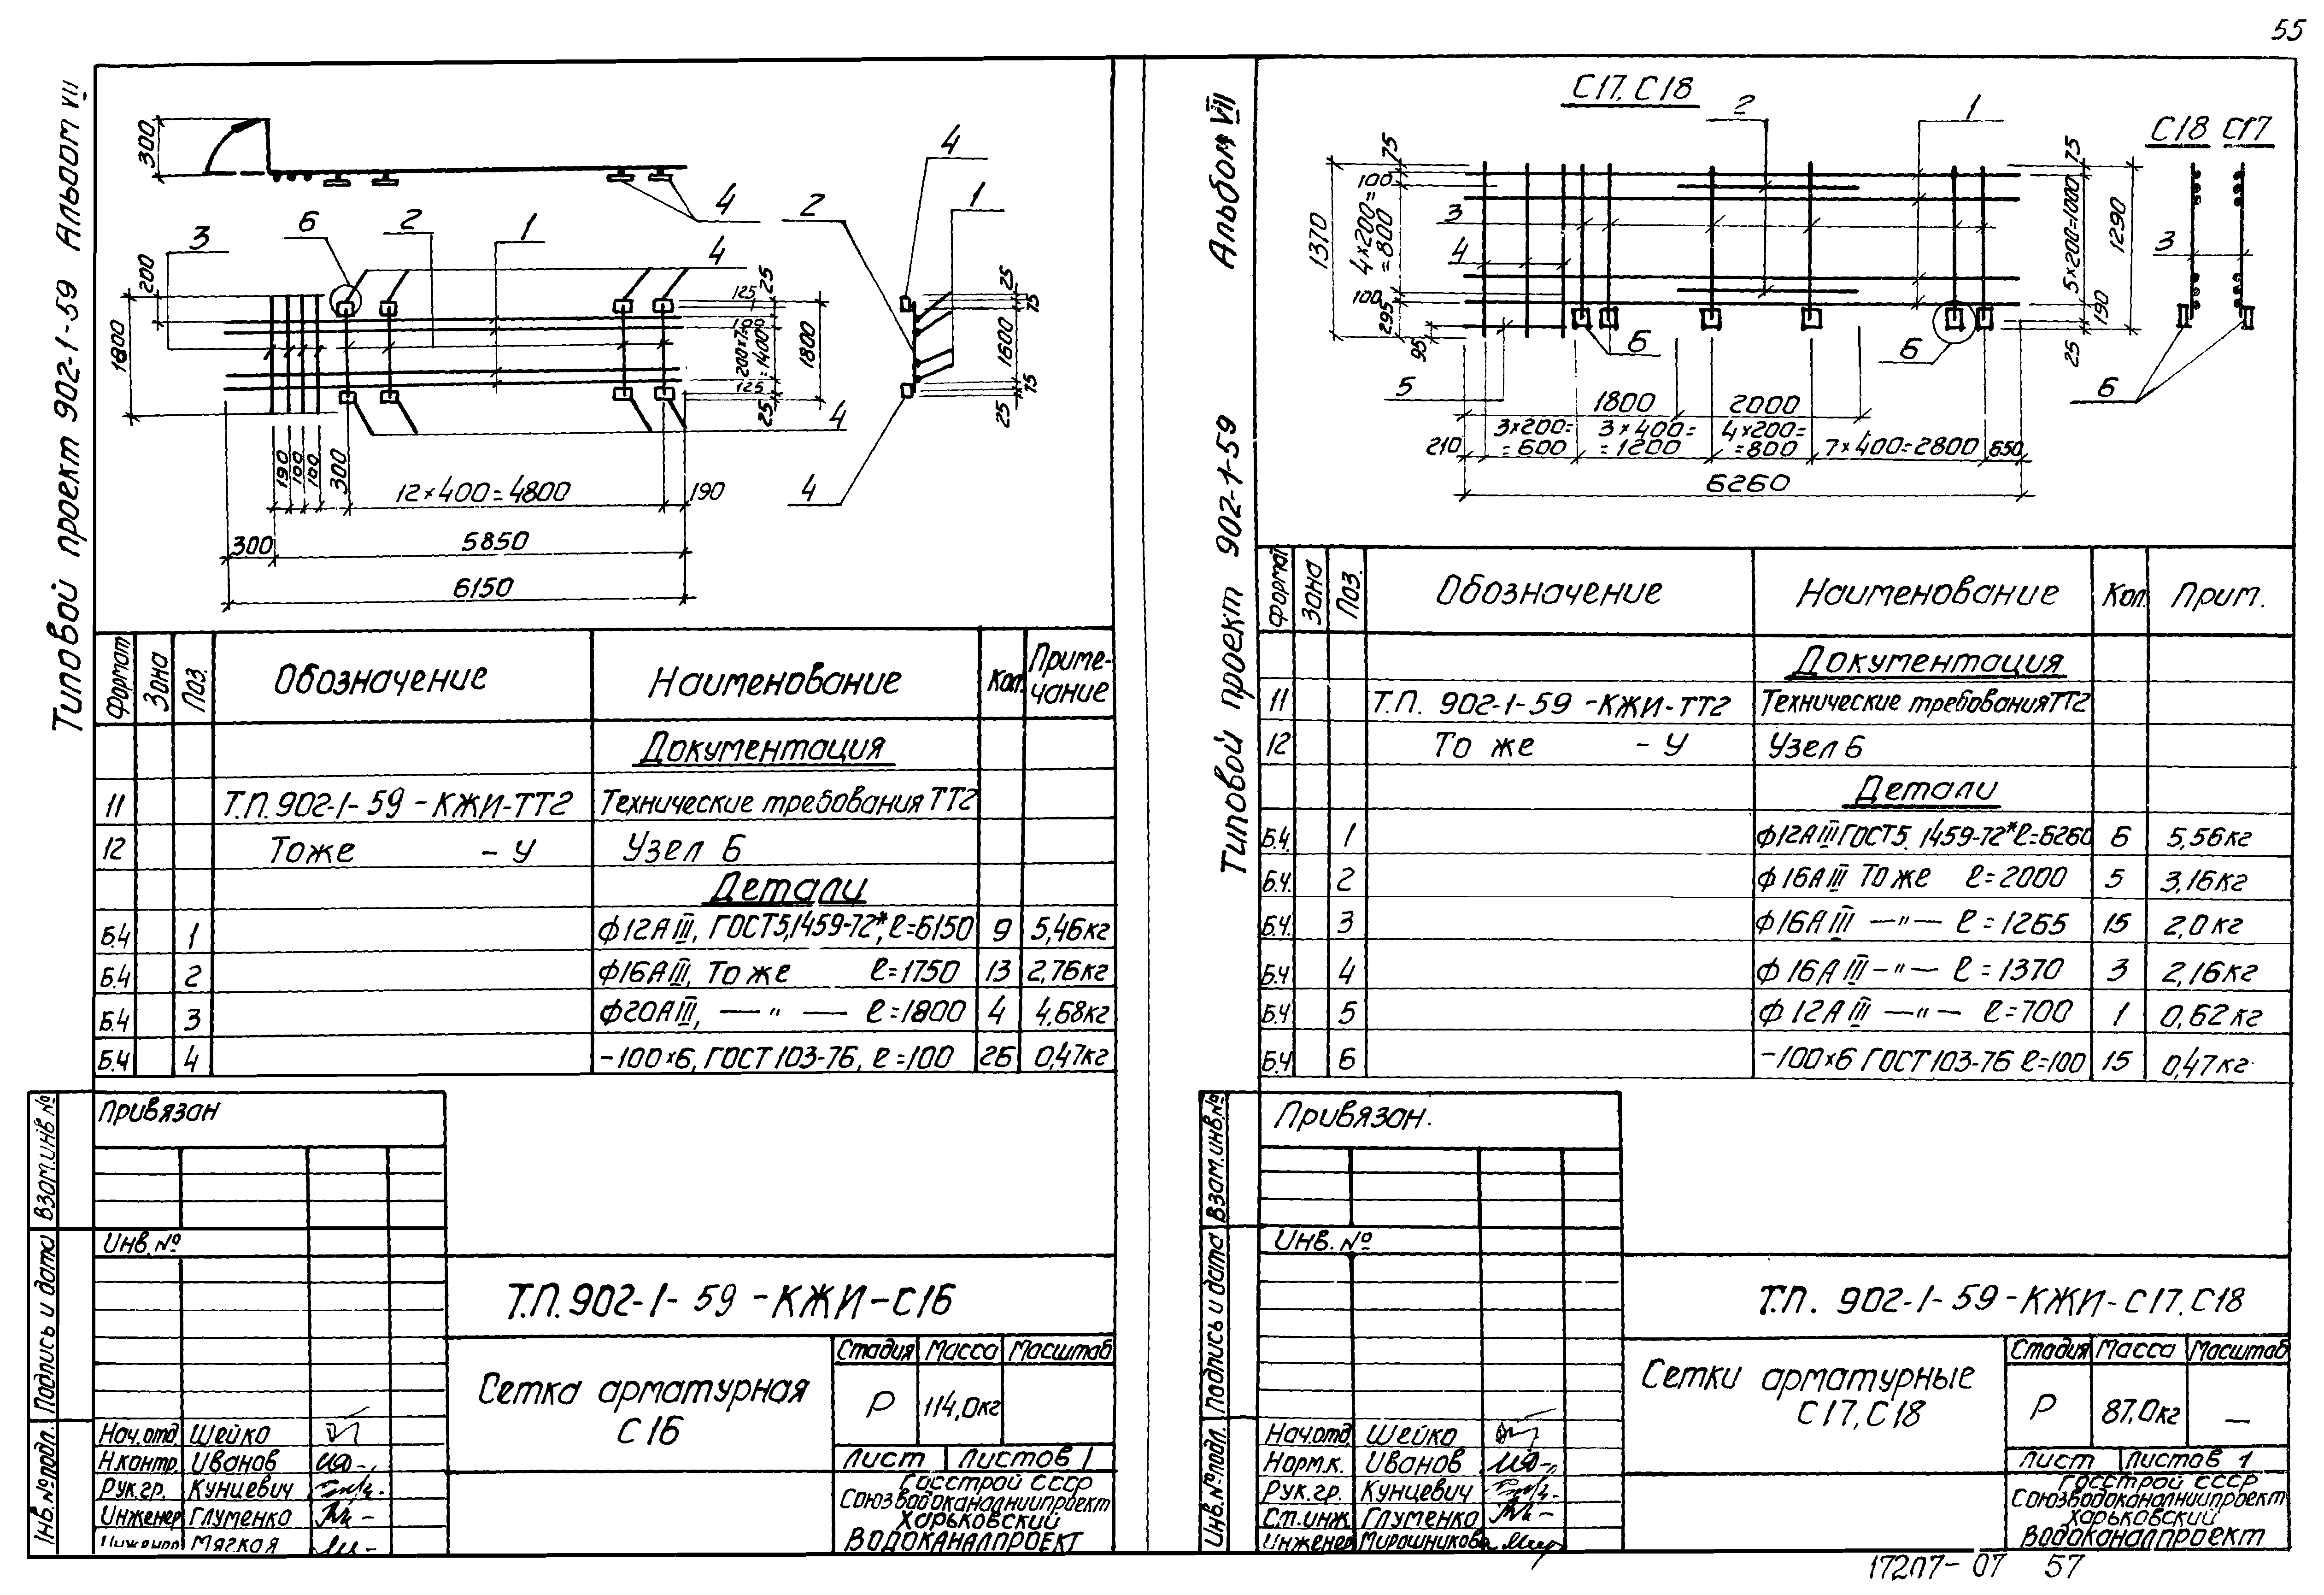 55
Типовой проект 902-1-59 Альбом VII
300
4
6
2
1
3
4
2
4
1
200
1800
4
125
25
100
200×7=
=1400
1800
125
25
25
75
1600
75
25
4
4
190
190
190
300
12×400=4800
190
300
5850
6150
Формат
Зона
Поз.
Обозначение
Наименование
Кол.
Приме-
чание
Документация
11 Т.П.902-1-59-КЖИ-ТТ2 Технические требования ТТ2
12 Тоже -У Узел Б
Детали
Б.4 1 ф12АIII, ГОСТ5,1459-72*, ℓ=6150 9 5,46кг
Б.4 2 ф16АIII, То же ℓ=1750 13 2,76кг
Б.4 3 ф20АIII, —"— ℓ=1800 4 4,68кг
Б.4 4 -100×6, ГОСТ 103-76, ℓ=100 26 0,47кг
Привязан
Инв.№
Взам.инв №
Подпись и дата
Инв.№подл.
Т.П.902-1-59-КЖИ-С16
Сетка арматурная
С16
Стадия Масса Масштаб
Р 114,0кг
Лист Листов 1
Нач.отд. Шейко
Н.контр. Иванов
Рук.гр. Кунцевич
Инженер Глуменко
Инженер Мягкая
Госстрой СССР
Союзводоканалниипроект
Харьковский
Водоканалпроект
Типовой проект 902-1-59 Альбом VII
С17, С18
2
1
С18 С17
75
100
4×200=
=800
1370
100
295
95
3
4
5
6
6
75
5×200=1000
1290
190
25
3
6
1800
2000
210
3×200=
=600
3×400=
=1200
4×200=
=800
7×400=2800
650
6260
Формат
Зона
Поз.
Обозначение
Наименование
Кол.
Прим.
Документация
11 Т.П. 902-1-59-КЖИ-ТТ2 Технические требования ТТ2
12 То же -У Узел Б
Детали
Б.4. 1 ф12АIII ГОСТ5. 1459-72* ℓ=6260 6 5,56кг
Б.4. 2 ф16АIII Тоже ℓ=2000 5 3,16кг
Б.4. 3 ф16АIII —"— ℓ=1265 15 2,0кг
Б.4 4 ф16АIII —"— ℓ=1370 3 2,16кг
Б.4 5 ф12АIII —"— ℓ=700 1 0,62кг
Б.4 6 -100×6 ГОСТ103-76 ℓ=100 15 0,47кг
Привязан.
Инв. №
Взам.инв.№
Подпись и дата
Инв.№подл.
Т.П. 902-1-59-КЖИ-С17, С18
Сетки арматурные
С17, С18
Стадия Масса Масштаб
Р 87,0кг —
Лист Листов 1
Нач.отд. Шейко
Норм.к. Иванов
Рук.гр. Кунцевич
Ст.инж. Глуменко
Инженер Мирошникова
Госстрой СССР
Союзводоканалниипроект
Харьковский
Водоканалпроект
17207-07 57